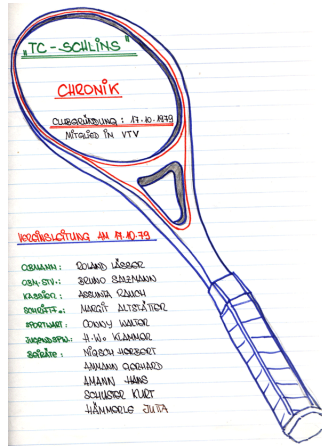 „TC - SCHLINS"
CHRONIK
CLUBGRÜNDUNG : 17.10.1979
MITGLIED IN VTV
VEREINSLEITUNG AM 17.10.79
OBMANN : ROLAND LÄSSER
OBM.-STV. : BRUNO SALZMANN
KASSIER : ASSUNTA RAUCH
SCHRIFTF. : MARGIT ALTSTÄTTER
SPORTWART : CONNY WALTER
JUGENDSPW. : H.W. KLAMMER
BEIRÄTE : NIGSCH HERBERT
AMMANN GERHARD
AMANN HANS
SCHUSTER KURT
HÄMMERLE JUTTA